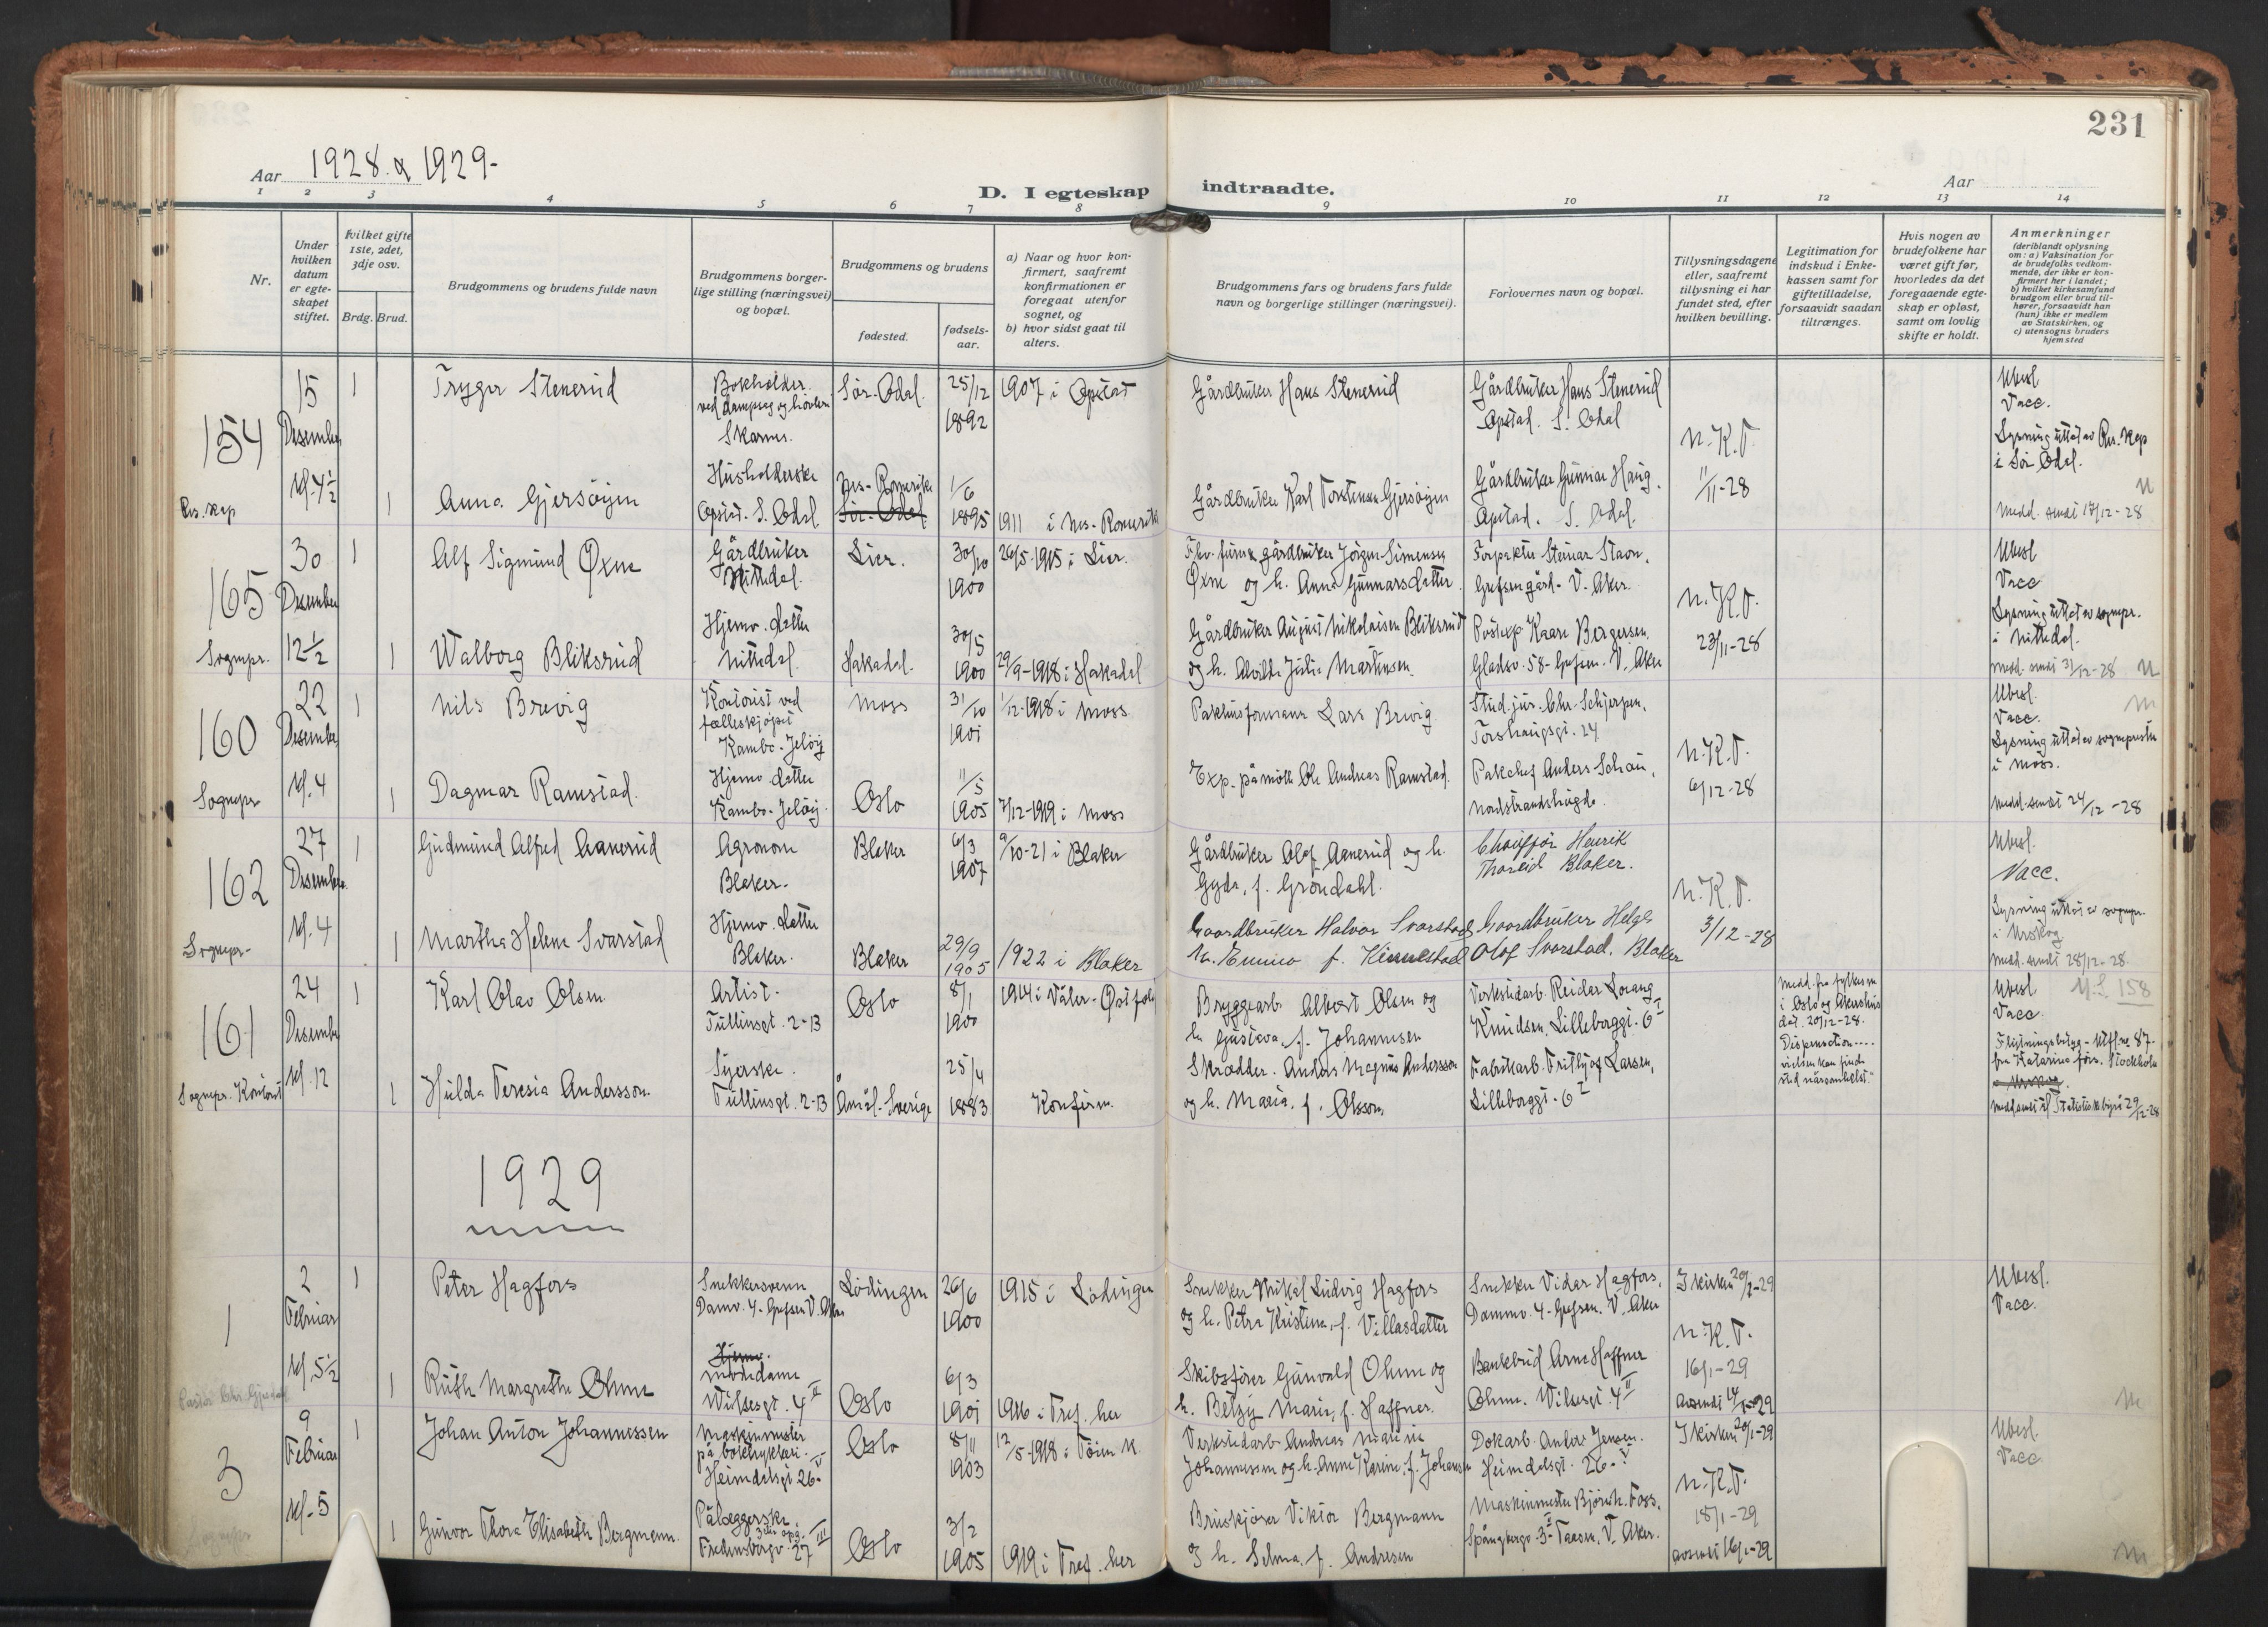 231
Aar 1928 & 1929-
D. I egteskap indtraadte.
Aar
1 2 3 4 5 6 7 8 9 10 11 12 13 14
Nr.
Under hvilken datum er egteskapet stiftet.
Hvilket gifte 1ste, 2det, 3dje osv.
Brdg. Brud.
Brudgommens og brudens fulde navn
Brudgommens borgerlige stilling (næringsvei) og bopæl.
Brudgommens og brudens
fødested.
fødselsaar.
a) Naar og hvor konfirmert, saafremt konfirmationen er foregaat utenfor sognet, og
b) hvor sidst gaat til alters.
Brudgommens fars og brudens fars fulde navn og borgerlige stillinger (næringsvei).
Forlovernes navn og bopæl.
Tillysningsdagene eller, saafremt tillysning ei har fundet sted, efter hvilken bevilling.
Legitimation for indskud i Enkekassen samt for giftetilladelse, forsaavidt saadan tiltrænges.
Hvis nogen av brudefolkene har været gift før, hvorledes da det foregaaende egteskap er opløst, samt om lovlig skifte er holdt.
Anmerkninger
(deriblandt oplysning om: a) Vaksination for de brudefolks vedkommende, der ikke er konfirmert her i landet;
b) hvilket kirkesamfund brudgom eller brud tilhører, forsaavidt han (hun) ikke er medlem av Statskirken, og
c) utensogns bruders hjemsted
154
Res. kap
15 Desember
Kl. 4 1/2
1 Trygve Stenerud
Bokholder ved dampsag og høvleri Skarnes.
Sør-Odal.
25/12 1892
1907 i Opstad
Gårdbruker Hans Stenerud
Gårdbruker Hans Stenerud
Opstad. S. Odal
N.K.T.
11/11-28
Ubesl.
Vacc.
Lysning uttat av Res. kap i Sør Odal.
Medd. sendt 17/12-28
1 Anna Gjersøyen
Husholderske
Opstad. S. Odal
Nes-Romerike
Sør-Odal
1/6 1895
1911 i Nes-Romerike
Gårdbruker Karl Torstensen Gjersøyen
Gårdbruker Gunnar Haug.
Opstad. S. Odal.
165
Sognepr.
30 Desember
12 1/2
1 Alf Sigmund Øxne
Gårdbruker
Nittedal.
Lier.
30/10 1900
26/5-1915 i Lier.
gårdbruker Jørgen Simensen
Øxne og h. Anna Gunnarsdatter
Forpakter Steinar Staon.
Grefsen gård. V. Aker.
N.K.T.
23/11-28
Ubesl
Vacc
Lysning uttat av sognepr. i Nittedal.
Medd. sendt 31/12-28
1 Walborg Bliksrud
Hjemv. datter
Nittedal.
Hakadal.
30/5 1900
29/9-1918 i Hakadal
Gårdbruker August Nikolaisen Bliksrud
og h. Alvilde Julie Martinsen
Postexp Kaare Bergersen.
Gladsv. 58-Grefsen. V. Aker
160
Sognepr
22 Desember
Kl. 4
1 Nils Brevig
Kontorist ved fælleskjøpet
Kambo-Jeløy
Moss
31/10 1901
1/12-1918 i Moss
Pakhusformann Lars Brevig
Stud. jur. Chr. Schjerpen,
Torshaugsgt. 24
N.K.T.
6/12-28
Ubesl.
Vacc.
Lysning uttat av sognepresten i Moss.
Medd. sendt 24/12-28
1 Dagmar Ramstad.
Hjemv. datter
Kambo-Jeløy.
Oslo
11/5 1905
7/12-1919 i Moss
Exp. på mølle Ole Andreas Ramstad.
Pakchef Anders Schou,
Nordstrandshøgda.
162
Sognepr.
27 Desember
Kl. 4
1 Gudmund Alfred Aanerud
Agronom
Blaker.
Blaker
6/3 1907
9/10-21 i Blaker
Gårdbruker Olof Aanerud og h.
Gyda, f. Grøndahl.
Chauffør Henrik
Thoreid Blaker.
N.K.T.
3/12-28
Ubesl.
Vacc.
Lysning uttat av sognepr. i Urskog
Medd. sendt 28/12-28
1 Martha Helene Svarstad
Hjemv. datter
Blaker.
Blaker
29/9 1905
1922 i Blaker
Gaardbruker Halvor Svarstad
h. Emma f. Kinnestad
Gaardbruker Helge
Olof Svarstad. Blaker
161
Sognepr. Kontoret
24 Desember
Kl. 12
1 Karl Olav Olsen
Artist.
Tullinsgt. 2-B
Oslo
8/1 1900
1914 i Våler-Østfold
Bryggearb. Albert Olsen og
h. Gustava, f. Johannesen
Verkstedarb. Reidar Lorang
Knudsen. Lilleborggt. 6 I
Medd. fra fylkesm. i Oslo og Akershus
dat. 20/12-28.
Dispensation....
vielsen kan finde sted nårsomhelst."
Ubesl
Vacc.
M.L 158
Flytningsbetyg-Utfl. nr 87-
fra Katarina förs. Stockholm
Medd sendt til Statistisk byrå 29/12-28
1 Hulda Teresia Andersson
Syerske.
Tullinsgt. 2-B
Åmål-Sverige
25/4 1883
Konfirm.
Skrædder. Anders Magnus Andersson
og h. Maria, f. Olsson,
Fabrikarb. Fritjof Larsen,
Lilleborggt. 6 I
1929
1
2 Februar
Kl. 5 1/2
1 Peter Hagfors
Snekkersvenn
Damv. 4-Grefsen V. Aker
Lødingen
26/6 1900
1915 i Lødingen
Snekker Mikal Ludvig Hagfors
og h. Petra Kristine, f. Villasdatter
Snekker Vidar Hagfors,
Dammv. 4-Grefsen. V. Aker
I kirken 20/1-29
N.K.T.
16/1-29
Avsendt 14/1-29
Ubesl.
Vacc.
1 Ruth Margrethe Ohme
Hjemv.
Motedame
Wilsesgt. 4 II
Oslo
6/3 1901
1916 i Tref. her
Skibsfører Gunvald Ohme og
h. Betzy Marie, f. Haffner.
Bankbud Arne Haffner
Ohme. Wilsesgt. 4 II
3
9 Februar
Kl. 5
1 Johan Anton Johannessen
Maskinmester på boktrykkeri.
Heimdalsgt 26 V
Oslo
8/11 1903
12/5-1918 i Tøien K.
Verkstedarb Andreas Marinie
Johannessen og h. Anne Karine, f. Johansen
Dokarb. Anders Jensen.
Heimdalsgt. 26 V
I kirken 20/1-29
N.K.T.
18/1-29
avsendt 16/1-29
Ubesl.
Vacc
1 Gunvor Thora Elisabeth Bergmann.
Pålæggerske.
Fredensborgv. 27 III
Oslo
3/2 1905
1919 i Tref. her
Bruskjører Viktor Bergmann
og h. Selma, f. Andresen
Maskinmester Bjørnh. Foss.
Spångbergv. 3 I Taasen, V. Aker.